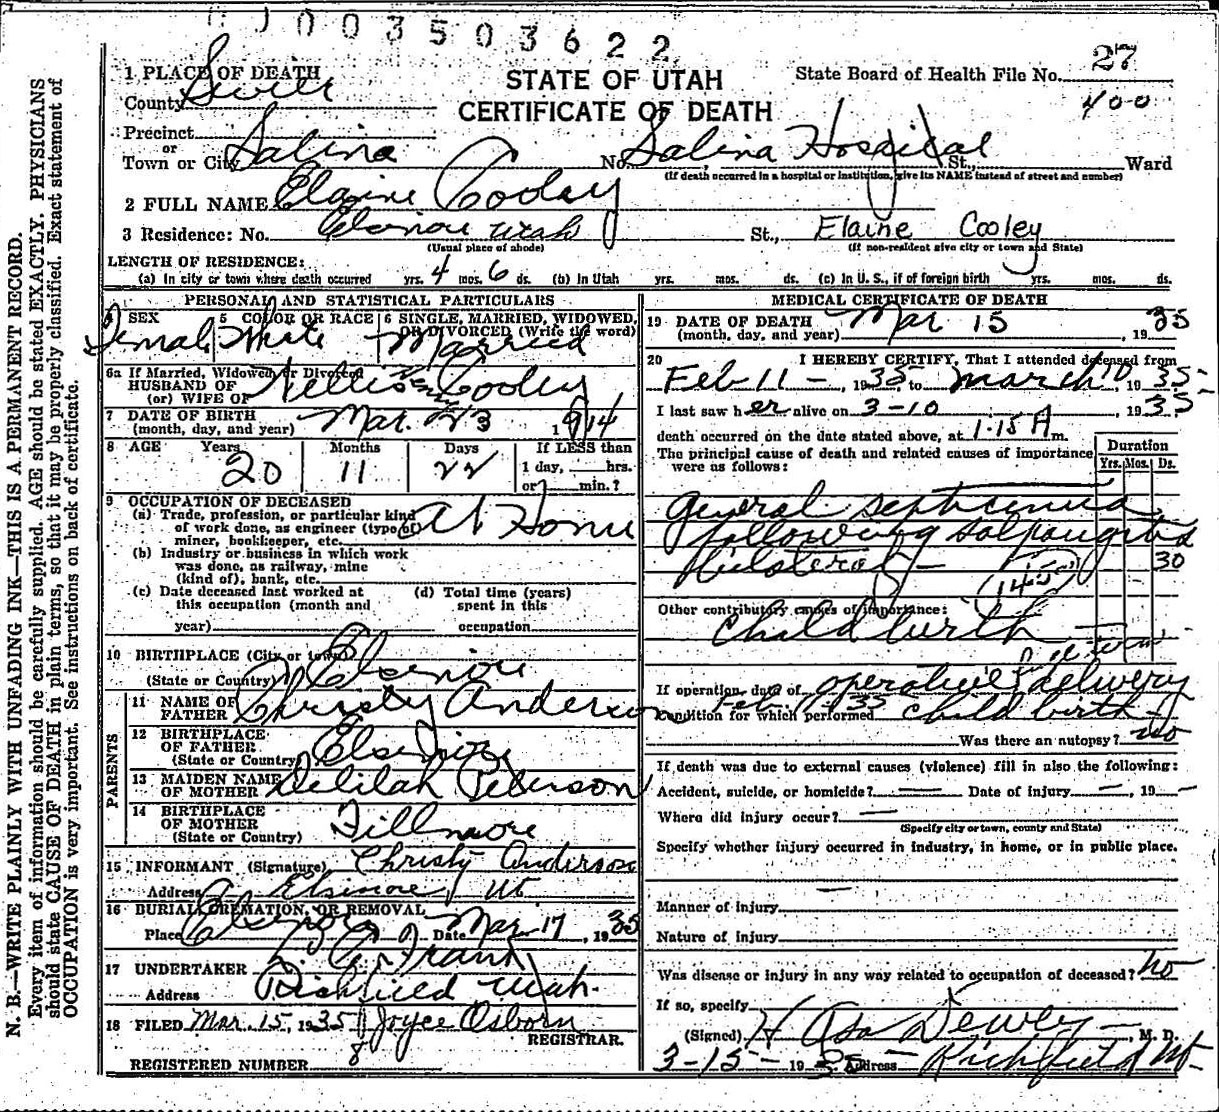 0 J 0 0 3 5 0 3 6 2 2
STATE OF UTAH
CERTIFICATE OF DEATH
State Board of Health File No. 27
400
1 PLACE OF DEATH
County Sevier
Precinct
or
Town or City Salina No. Salina Hospital St., Ward
(If death occurred in a hospital or institution, give its NAME instead of street and number)
2 FULL NAME Elaine Cooley
3 Residence: No. Elsinore Utah St., Elaine Cooley
(Usual place of abode) (If non-resident give city or town and State)
LENGTH OF RESIDENCE:
(a) In city or town where death occurred yrs. 4 mos. 6 ds. (b) In Utah yrs. mos. ds. (c) In U. S., if of foreign birth yrs. mos. ds.
PERSONAL AND STATISTICAL PARTICULARS
4 SEX 5 COLOR OR RACE 6 SINGLE, MARRIED, WIDOWED, OR DIVORCED (Write the word)
Female White Married
6a If Married, Widowed or Divorced
HUSBAND OF
(or) WIFE OF Nellis Henry Cooley
7 DATE OF BIRTH
(month, day, and year) Mar. 23 1914
8 AGE Years Months Days If LESS than
20 11 22 1 day, hrs.
or min.?
9 OCCUPATION OF DECEASED
(a) Trade, profession, or particular kind
of work done, as engineer (type of)
miner, bookkeeper, etc. At Home
(b) Industry or business in which work
was done, as railway, mine
(kind of), bank, etc.
(c) Date deceased last worked at
this occupation (month and
year)
(d) Total time (years)
spent in this
occupation
10 BIRTHPLACE (City or town)
(State or Country) Elsinore
PARENTS
11 NAME OF
FATHER Christy Anderson
12 BIRTHPLACE
OF FATHER
(State or Country) Elsinore
13 MAIDEN NAME
OF MOTHER Delilah Peterson
14 BIRTHPLACE
OF MOTHER
(State or Country) Fillmore
15 INFORMANT (Signature) Christy Anderson
Address Elsinore Ut
16 BURIAL, CREMATION, OR REMOVAL
Place Elsinore Date Mar. 17, 1935
17 UNDERTAKER
Address Richfield Utah.
18 FILED Mar. 15, 1935 Joyce Osborn
REGISTRAR.
REGISTERED NUMBER 8
MEDICAL CERTIFICATE OF DEATH
19 DATE OF DEATH
(month, day, and year) Mar 15, 1935
20 I HEREBY CERTIFY, That I attended deceased from
Feb 11 -, 1935 to march 10, 1935
I last saw her alive on 3-10, 1935
death occurred on the date stated above, at 1.15 A m.
The principal cause of death and related causes of importance
were as follows:
Duration
Yrs. Mos. Ds.
general septicemia
following salpingitis
bilateral - 30
(145)
Other contributory causes of importance:
Child birth
If operation, date of operative delivery
Feb. 35
Condition for which performed child birth
Was there an autopsy? no
If death was due to external causes (violence) fill in also the following:
Accident, suicide, or homicide? — Date of injury —, 19 —
Where did injury occur? —
(Specify city or town, county and State)
Specify whether injury occurred in industry, in home, or in public place.
—
Manner of injury
Nature of injury
Was disease or injury in any way related to occupation of deceased? no
If so, specify
(Signed) H Asa Dewey, M. D.
3-15- 1935 Address Richfield Ut-
N. B.—WRITE PLAINLY WITH UNFADING INK—THIS IS A PERMANENT RECORD.
Every item of information should be carefully supplied. AGE should be stated EXACTLY. PHYSICIANS
should state CAUSE OF DEATH in plain terms, so that it may be properly classified. Exact statement of
OCCUPATION is very important. See instructions on back of certificate.